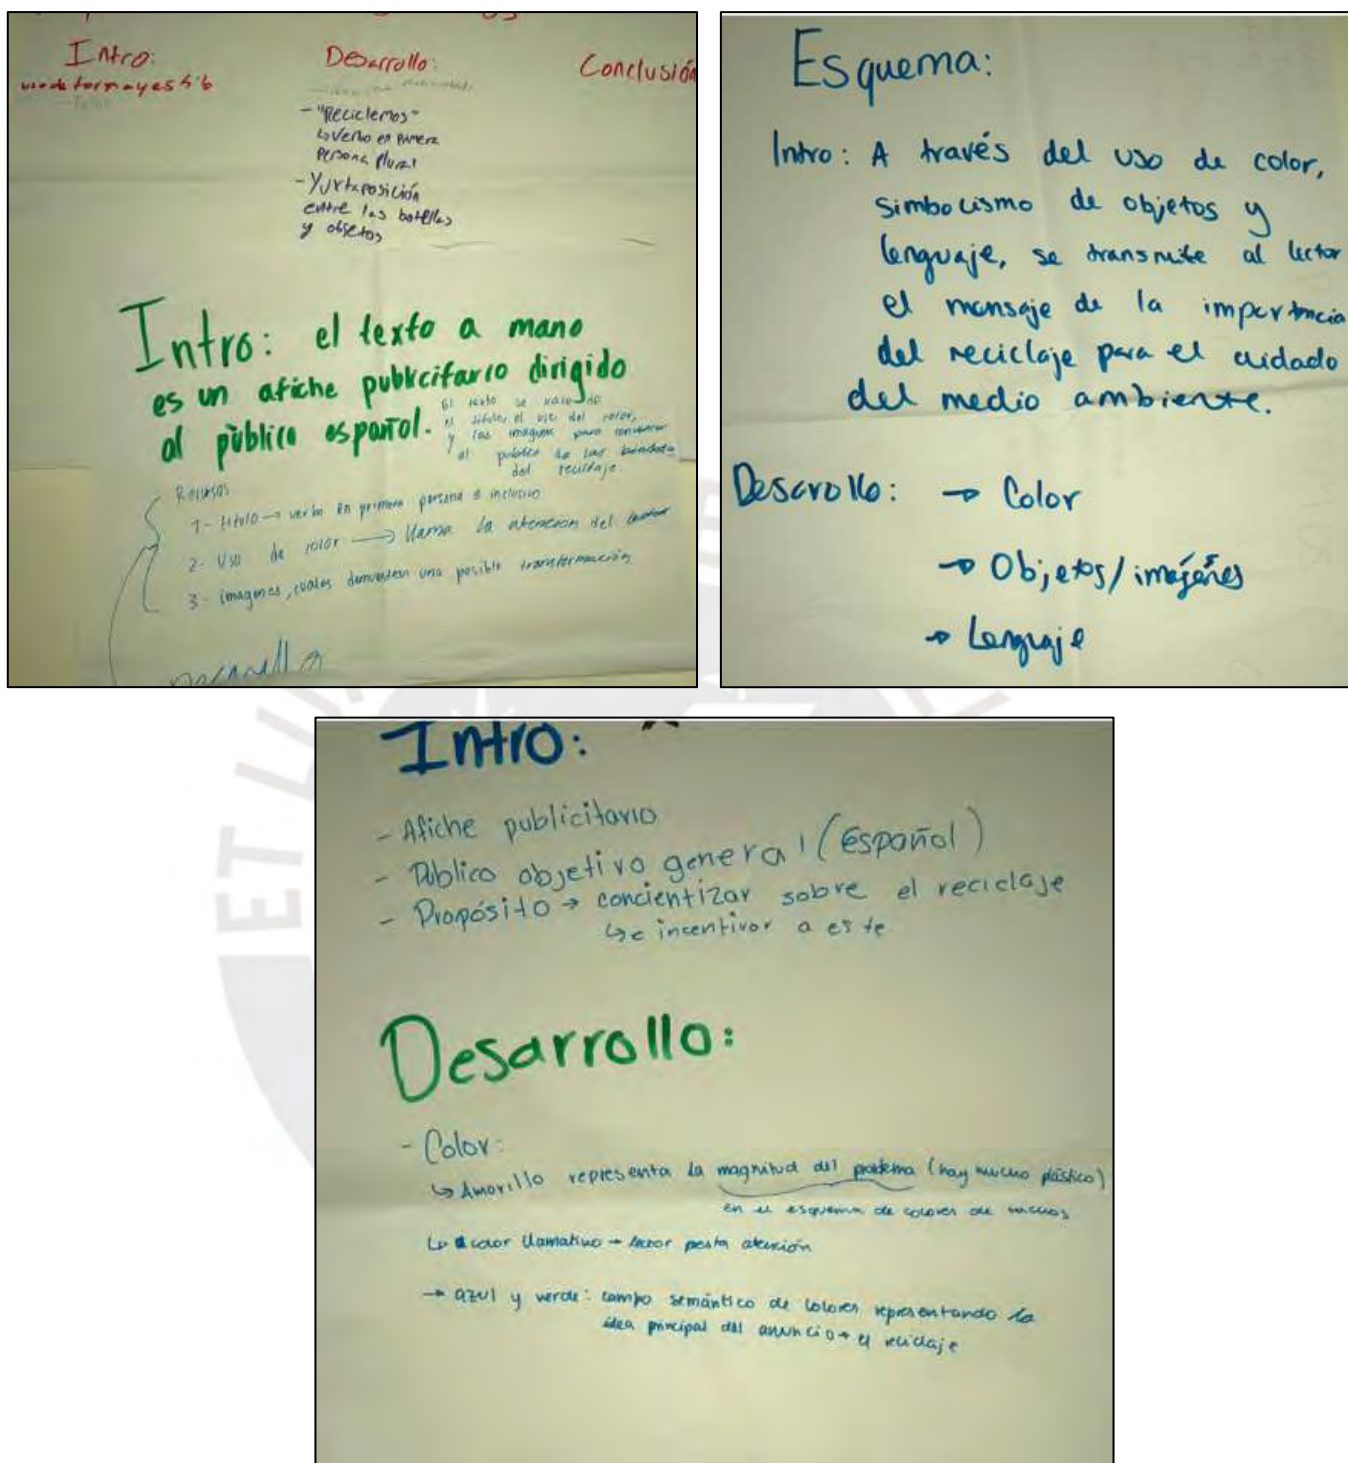 Intro:
Desarrollo:
Conclusión
- "Reciclemos"
↳ Verbo en primera
persona plural
- Yuxtaposición
entre las botellas
y objetos
Intro: el texto a mano
es un afiche publicitario dirigido
al público español.
El texto se vale de
el título, el uso del color,
y las imagenes para convencer
al público de los
del reciclaje.
Recursos
1- título → verbo en primera persona e inclusivo
2- Uso de color → llama la atención del lector
3- imagenes, cuales demuestran una posible transformación
Esquema:
Intro: A través del uso de color,
simbolismo de objetos y
lenguaje, se transmite al lector
el mensaje de la importancia
del reciclaje para el cuidado
del medio ambiente.
Desarollo: → Color
→ Objetos/imágenes
→ Lenguaje
Intro:
- Afiche publicitario
- Público objetivo general (Español)
- Propósito → concientizar sobre el reciclaje
↳ e incentivar a este
Desarrollo:
- Color:
↳ Amarillo representa la magnitud del problema (hay mucho plástico)
en el esquema de colores de
↳ color llamativo → lector presta atención
→ azul y verde: campo semántico de colores representando la
idea principal del anuncio → el reciclaje
ET LU